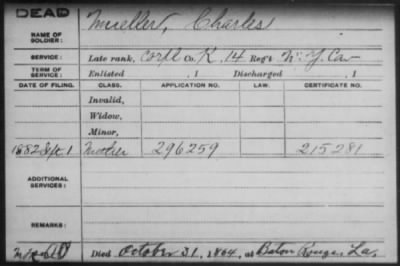 DEAD
NAME OF SOLDIER: Mueller, Charles
SERVICE: Late rank, Corpl Co. K, 14 Reg't N.Y. Cav
TERM OF SERVICE: Enlisted , 1 Discharged , 1
DATE OF FILING. CLASS. APPLICATION NO. LAW. CERTIFICATE NO.
Invalid,
Widow,
Minor,
1882 Sept 1 Mother 296259 215281
ADDITIONAL SERVICES:
REMARKS:
Died October 31, 1864, at Baton Rouge, La.